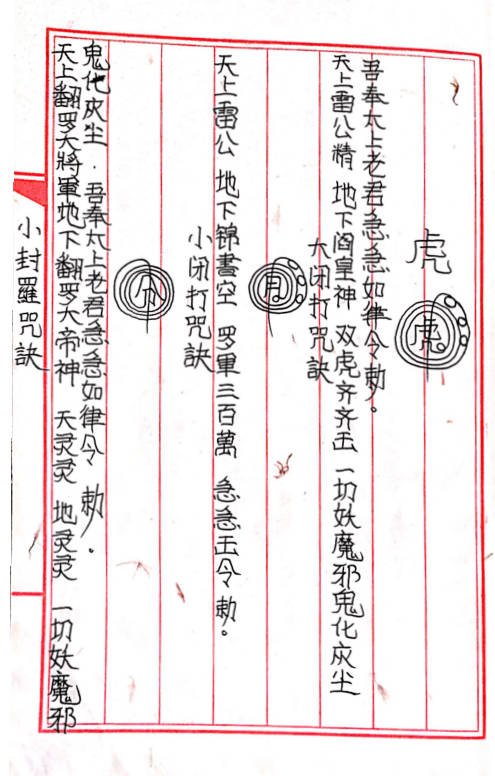 小封羅咒訣
天上翻罗大將軍地下翻罗大帝神 天灵灵 地灵灵 一切妖魔邪
鬼化灰尘.吾奉太上老君急急如律令勅。
小闭打咒訣
天上雷公 地下锦書空 罗軍三百萬 急急玉令勅。
月
大闭打咒訣
天上雷公精 地下阎皇神 双虎齐齐玉 一切妖魔邪鬼化灰尘
吾奉太上老君急急如律令勅。
虎
虎